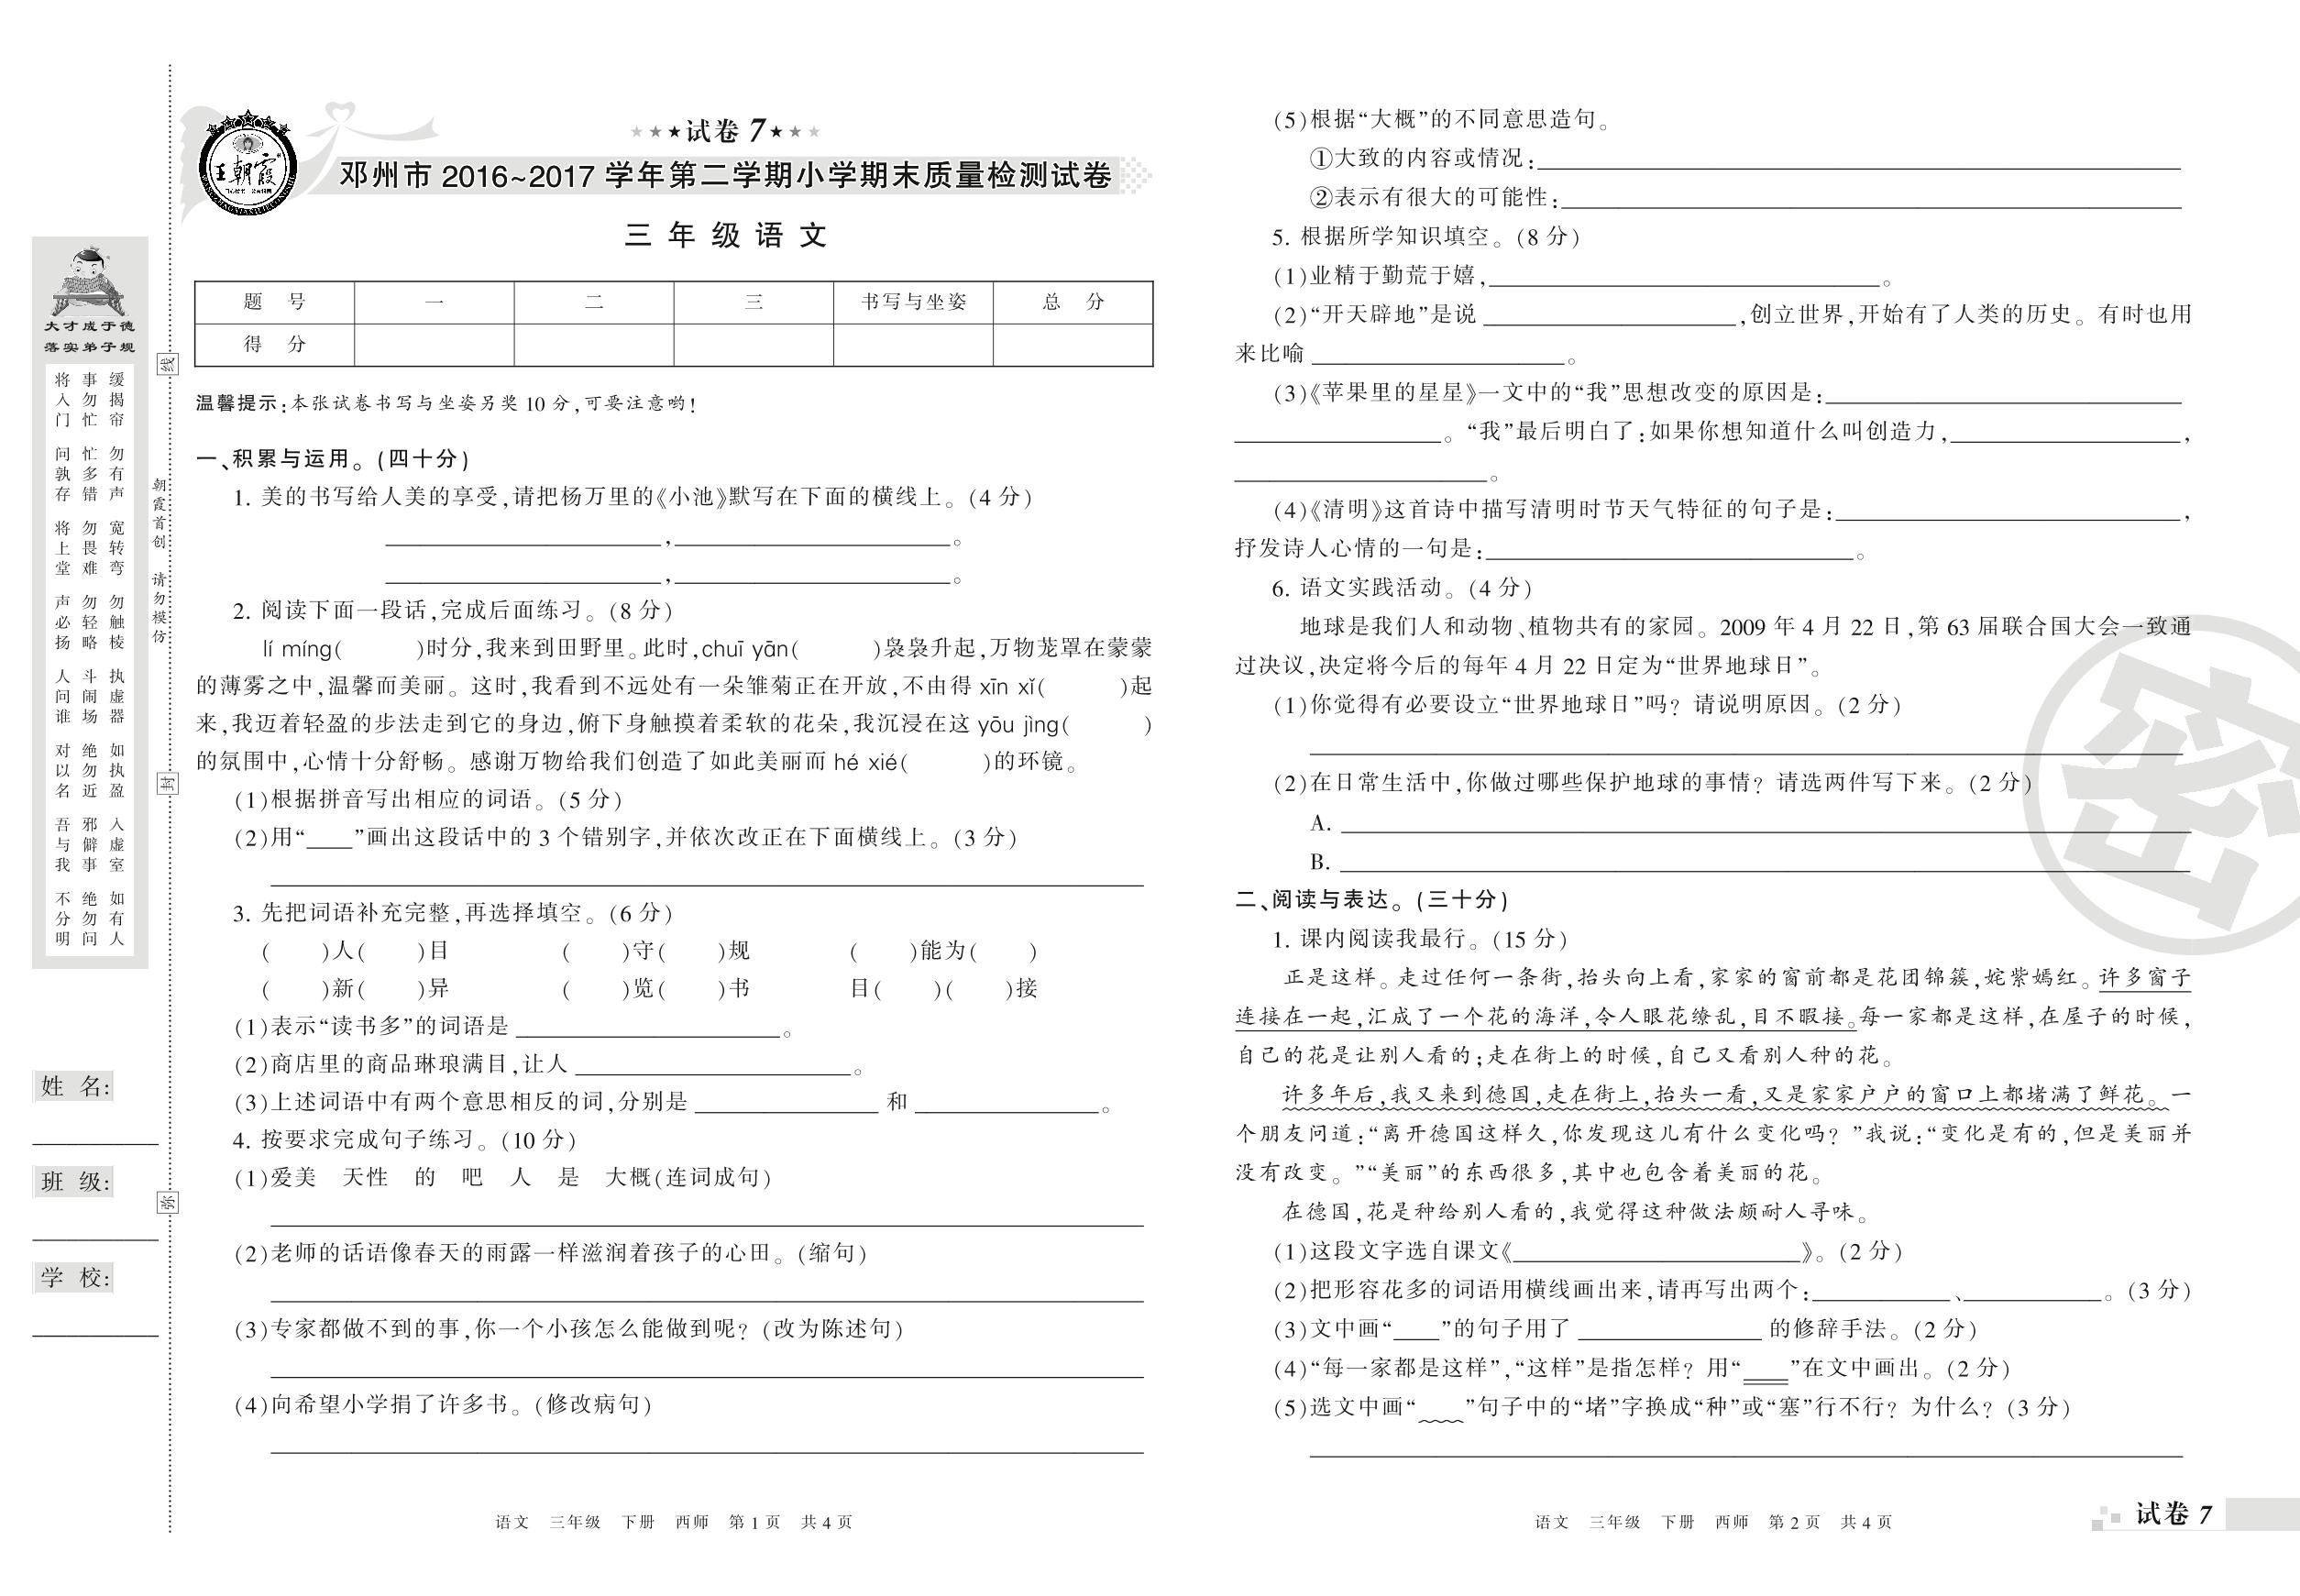 ★★★试卷 7★★★
王朝霞
邓州市 2016~2017 学年第二学期小学期末质量检测试卷
三 年 级 语 文
题 号 一 二 三 书写与坐姿 总 分
得 分
温馨提示:本张试卷书写与坐姿另奖 10 分,可要注意哟!
一、积累与运用。(四十分)
1. 美的书写给人美的享受,请把杨万里的《小池》默写在下面的横线上。(4 分)
____________,____________。
____________,____________。
2. 阅读下面一段话,完成后面练习。(8 分)
lí míng( )时分,我来到田野里。此时,chuī yān( )袅袅升起,万物茏罩在蒙蒙
的薄雾之中,温馨而美丽。这时,我看到不远处有一朵雏菊正在开放,不由得 xīn xǐ( )起
来,我迈着轻盈的步法走到它的身边,俯下身触摸着柔软的花朵,我沉浸在这 yōu jìng( )
的氛围中,心情十分舒畅。感谢万物给我们创造了如此美丽而 hé xié( )的环镜。
(1)根据拼音写出相应的词语。(5 分)
(2)用“____”画出这段话中的 3 个错别字,并依次改正在下面横线上。(3 分)
3. 先把词语补充完整,再选择填空。(6 分)
( )人( )目 ( )守( )规 ( )能为( )
( )新( )异 ( )览( )书 目( )( )接
(1)表示“读书多”的词语是 ____________。
(2)商店里的商品琳琅满目,让人 ____________。
(3)上述词语中有两个意思相反的词,分别是 ____________ 和 ____________。
4. 按要求完成句子练习。(10 分)
(1)爱美 天性 的 吧 人 是 大概(连词成句)
(2)老师的话语像春天的雨露一样滋润着孩子的心田。(缩句)
(3)专家都做不到的事,你一个小孩怎么能做到呢?(改为陈述句)
(4)向希望小学捐了许多书。(修改病句)
语文 三年级 下册 西师 第 1 页 共 4 页
(5)根据“大概”的不同意思造句。
①大致的内容或情况:____________
②表示有很大的可能性:____________
5. 根据所学知识填空。(8 分)
(1)业精于勤荒于嬉,____________。
(2)“开天辟地”是说 ____________,创立世界,开始有了人类的历史。有时也用
来比喻 ____________。
(3)《苹果里的星星》一文中的“我”思想改变的原因是:____________
____________。“我”最后明白了:如果你想知道什么叫创造力,____________,
____________。
(4)《清明》这首诗中描写清明时节天气特征的句子是:____________,
抒发诗人心情的一句是:____________。
6. 语文实践活动。(4 分)
地球是我们人和动物、植物共有的家园。2009 年 4 月 22 日,第 63 届联合国大会一致通
过决议,决定将今后的每年 4 月 22 日定为“世界地球日”。
(1)你觉得有必要设立“世界地球日”吗?请说明原因。(2 分)
(2)在日常生活中,你做过哪些保护地球的事情?请选两件写下来。(2 分)
A. ____________
B. ____________
二、阅读与表达。(三十分)
1. 课内阅读我最行。(15 分)
正是这样。走过任何一条街,抬头向上看,家家的窗前都是花团锦簇,姹紫嫣红。许多窗子
连接在一起,汇成了一个花的海洋,令人眼花缭乱,目不暇接。每一家都是这样,在屋子的时候,
自己的花是让别人看的;走在街上的时候,自己又看别人种的花。
许多年后,我又来到德国,走在街上,抬头一看,又是家家户户的窗口上都堵满了鲜花。一
个朋友问道:“离开德国这样久,你发现这儿有什么变化吗?”我说:“变化是有的,但是美丽并
没有改变。”“美丽”的东西很多,其中也包含着美丽的花。
在德国,花是种给别人看的,我觉得这种做法颇耐人寻味。
(1)这段文字选自课文《____________》。(2 分)
(2)把形容花多的词语用横线画出来,请再写出两个:____________、____________。(3 分)
(3)文中画“____”的句子用了 ____________ 的修辞手法。(2 分)
(4)“每一家都是这样”,“这样”是指怎样?用“____”在文中画出。(2 分)
(5)选文中画“____”句子中的“堵”字换成“种”或“塞”行不行?为什么?(3 分)
语文 三年级 下册 西师 第 2 页 共 4 页
试卷 7
密
大才成于德
落实弟子规
缓揭帘 勿有声 宽转弯 勿触棱 执虚器 如执盈 入虚室 如有人
事勿忙 忙多错 勿畏难 勿轻略 斗闹场 绝勿近 邪僻事 绝勿问
将入门 问孰存 将上堂 声必扬 人问谁 对以名 吾与我 不分明
朝霞首创 请勿模仿
线
封
弥
姓 名:
班 级:
学 校: